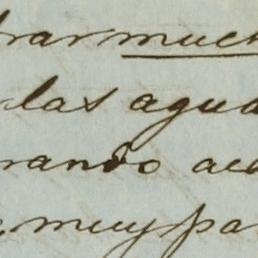 trar much
las agua
rando aca
muy pa